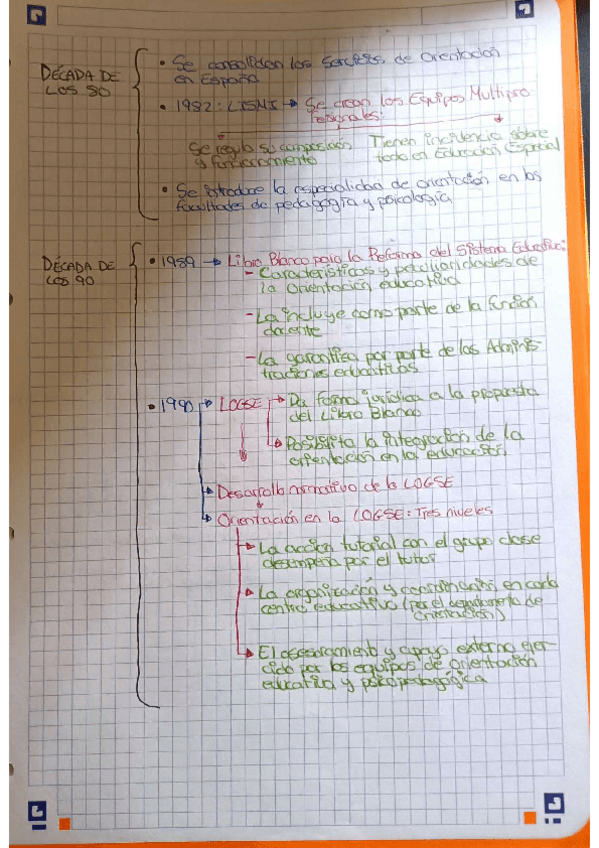 DÉCADA DE
LOS 80
• Se consolidan los Servicios de Orientación
en España
• 1982: LISMI → Se crean los Equipos Multipro
fesionales:
Se regula su composición
y funcionamiento
Tienen incidencia sobre
todo en Educación Especial
• Se introduce la especialidad de orientación en las
facultades de pedagogía y psicología
DÉCADA DE
LOS 90
• 1989 → Libro Blanco para la Reforma del Sistema Educativo:
- Características y peculiaridades de
la Orientación educativa
- La incluye como parte de la función
docente
- La garantiza por parte de las Adminis-
traciones educativas
• 1990 → LOGSE → Da forma jurídica a la propuesta
del Libro Blanco
→ Posibilita la integración de la
orientación en la educación.
→ Desarrollo normativo de la LOGSE
→ Orientación en la LOGSE: Tres niveles
→ La acción tutorial con el grupo clase
desempeña por el tutor
→ La organización y coordinación en cada
centro educativo (por el departamento de
orientación)
→ El asesoramiento y apoyo externo ejer-
cido por los equipos de orientación
educativa y psicopedagógica